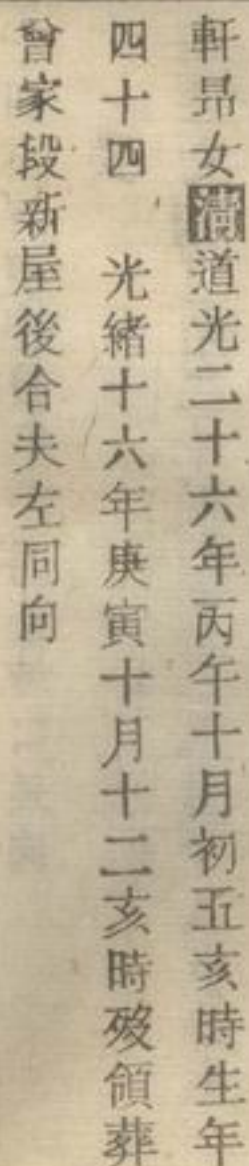 軒昂女清道光二十六年丙午十月初五亥時生年
四十四 光緒十六年庚寅十月十二亥時歿領葬
曾家段新屋後合夫左同向